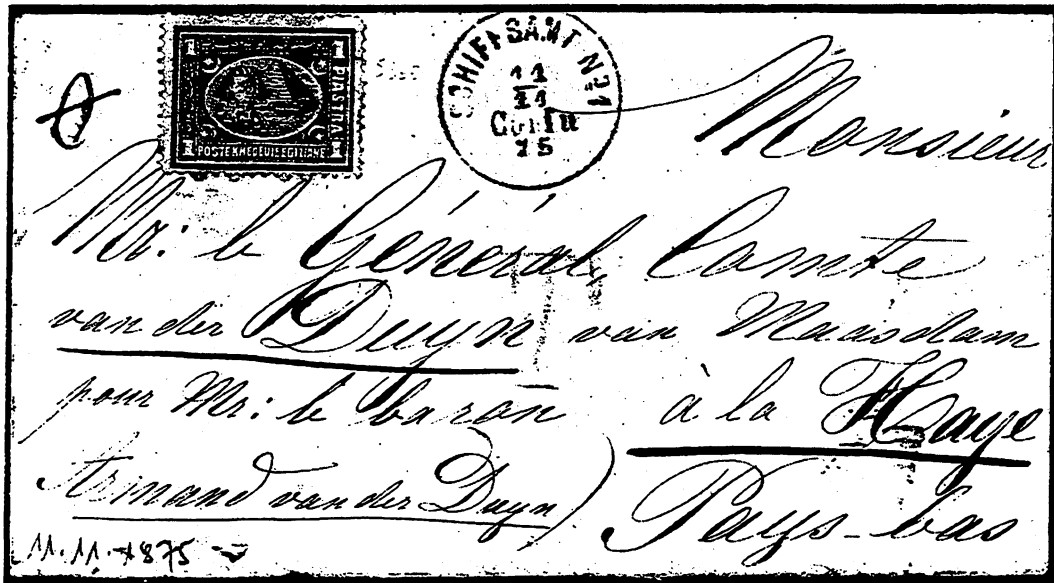 1 1
PIASTRA
1 1
POSTE KHEDEUIE EGIZIANE
SCHIFFSAMT No 1
11
11
Corfu
75
T
Monsieur
Mr: le Général, Comte
van der Duyn van Maasdam
pour Mr: le baron à la Haye
Armand van der Duyn) Pays-bas
11.11.1875